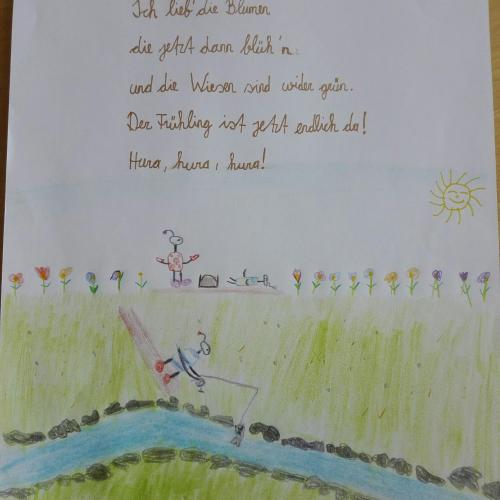 Ich lieb' die Blumen
die jetzt dann blüh'n.
und die Wiesen sind wider grün.
Der Frühling ist jetzt endlich da!
Hura, hura, hura!